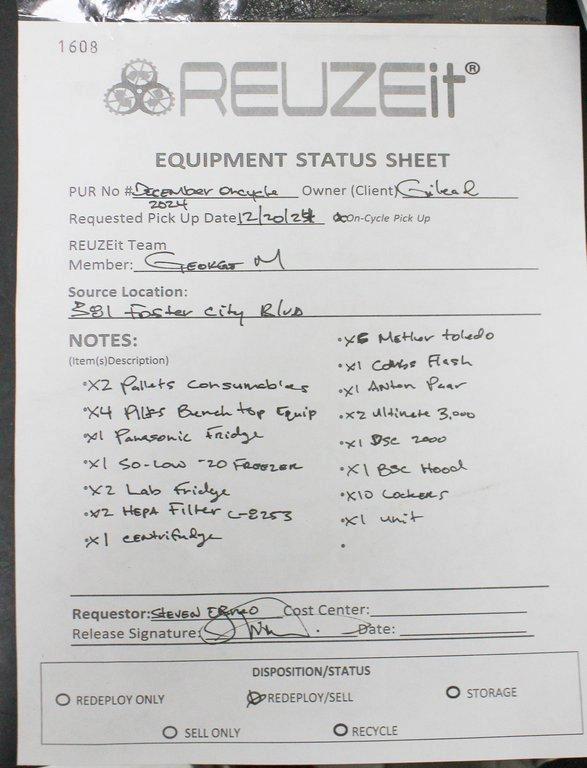 1608
REUZEit®
EQUIPMENT STATUS SHEET
PUR No # December Oncycle 2024 Owner (Client) Gilead
Requested Pick Up Date 12/20/24 On-Cycle Pick Up
REUZEit Team
Member: George M
Source Location:
381 Foster City Blvd
NOTES:
(Item(s)Description)
•X2 Pallets Consumables
•X4 Pllts Bench top Equip
•X1 Panasonic Fridge
•X1 So-Low -20 Freezer
•X2 Lab Fridge
•X2 HEPA Filter C-8253
•X1 centrifudge
•X5 Metler toledo
•X1 Combi Flash
•X1 Anton Paar
•X2 Ultimate 3,000
•X1 DSC 2000
•X1 BSC Hood
•X10 Lockers
•X1 unit
•
Requestor: Steven Cost Center:
Release Signature: Date:
DISPOSITION/STATUS
REDEPLOY ONLY REDEPLOY/SELL STORAGE
SELL ONLY RECYCLE